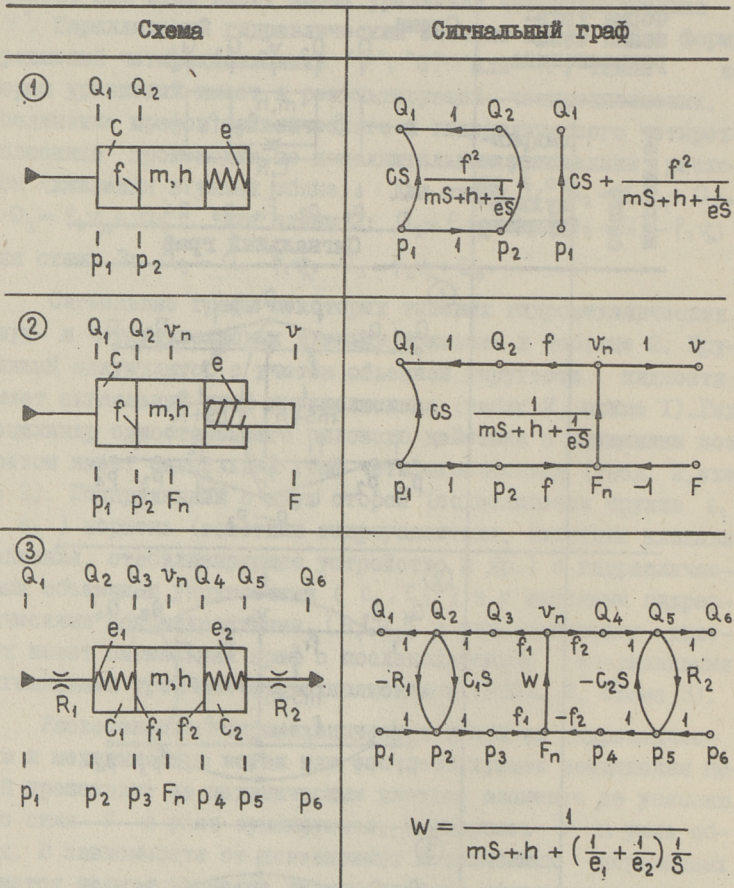 Схема
Сигнальный граф
1
Q₁ Q₂
C
e
f
m,h
p₁ p₂
Q₁ 1 Q₂ Q₁
CS
f²
mS+h+1/eS
CS + f²/(mS+h+1/eS)
p₁ 1 p₂ p₁
2
Q₁ Q₂ vₙ v
C
e
f
m,h
p₁ p₂ Fₙ F
Q₁ 1 Q₂ f vₙ 1 v
CS
1/(mS+h+1/eS)
p₁ 1 p₂ f Fₙ -1 F
3
Q₁ Q₂ Q₃ vₙ Q₄ Q₅ Q₆
e₁ e₂
m,h
R₁ R₂
C₁ f₁ f₂ C₂
p₁ p₂ p₃ Fₙ p₄ p₅ p₆
Q₁ Q₂ Q₃ vₙ Q₄ Q₅ Q₆
1 1 f₁ f₂ 1 1
-R₁ C₁S W -C₂S R₂
1 1 f₁ -f₂ 1 1
p₁ p₂ p₃ Fₙ p₄ p₅ p₆
W = 1/(mS + h + (1/e₁ + 1/e₂) 1/S)